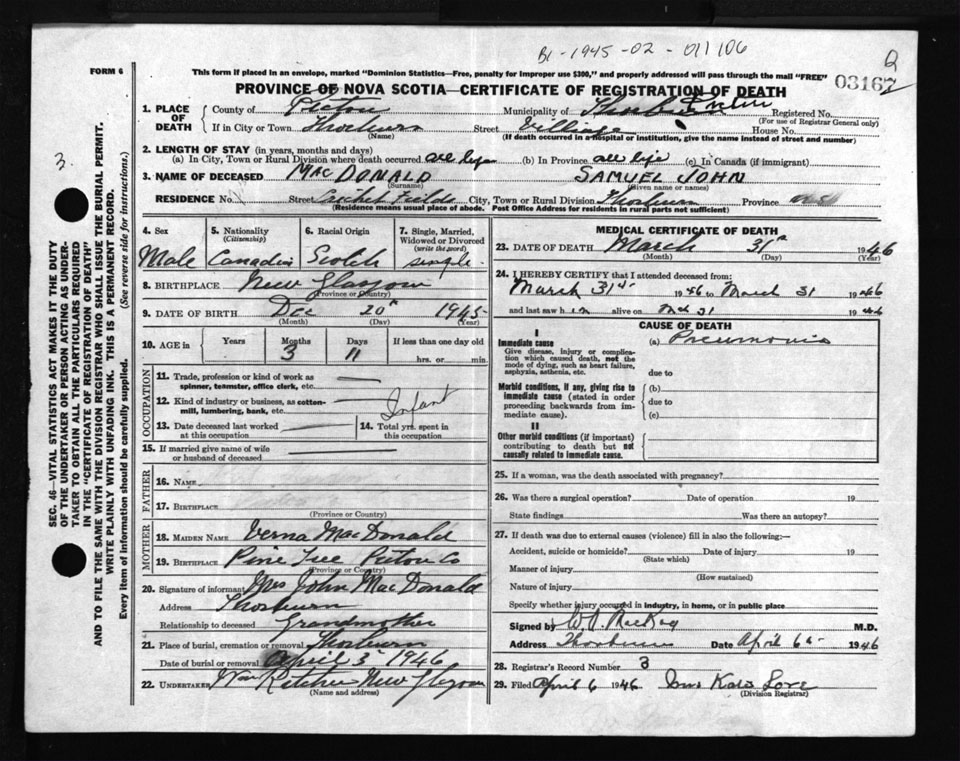 B1-1945-02-011106
Q
FORM 6
This form if placed in an envelope, marked "Dominion Statistics—Free, penalty for improper use $300," and properly addressed will pass through the mail "FREE"
03167
PROVINCE OF NOVA SCOTIA—CERTIFICATE OF REGISTRATION OF DEATH
1. PLACE OF DEATH
County of Pictou Municipality of Registered No.
(For use of Registrar General only)
If in City or Town Thorburn Street Village House No.
(Name) (If death occurred in a hospital or institution, give the name instead of street and number)
2. LENGTH OF STAY (in years, months and days)
(a) In City, Town or Rural Division where death occurred all life (b) In Province all life (c) In Canada (if immigrant)
3. NAME OF DECEASED MACDONALD SAMUEL JOHN
(Surname) (Given name or names)
RESIDENCE No. Street Cricket Fields City, Town or Rural Division Thorburn Province N.S.
(Residence means usual place of abode. Post Office Address for residents in rural parts not sufficient)
4. Sex Male
5. Nationality (Citizenship) Canadian
6. Racial Origin Scotch
7. Single, Married, Widowed or Divorced (write the word) single
8. BIRTHPLACE New Glasgow
(Province or Country)
9. DATE OF BIRTH Dec 20 1945
(Month) (Day) (Year)
10. AGE in Years Months Days If less than one day old
3 11 hrs. or min.
OCCUPATION
11. Trade, profession or kind of work as spinner, teamster, office clerk, etc.
12. Kind of industry or business, as cotton-mill, lumbering, bank, etc.
Infant
13. Date deceased last worked at this occupation
14. Total yrs. spent in this occupation
15. If married give name of wife or husband of deceased
FATHER
16. NAME
17. BIRTHPLACE
(Province or Country)
MOTHER
18. MAIDEN NAME Verna MacDonald
19. BIRTHPLACE Pine Tree Pictou Co
(Province or Country)
20. Signature of informant Mrs John MacDonald
Address Thorburn
Relationship to deceased Grandmother
21. Place of burial, cremation or removal Thorburn
Date of burial or removal April 3 1946
22. UNDERTAKER Wm Ritchie New Glasgow
(Name and address)
MEDICAL CERTIFICATE OF DEATH
23. DATE OF DEATH March 31st 1946
(Month) (Day) (Year)
24. I HEREBY CERTIFY that I attended deceased from:
March 31st 1946 to March 31 1946
and last saw him alive on Mch 31 1946
CAUSE OF DEATH
I
Immediate cause (a) Pneumonia
Give disease, injury or complication which caused death, not the mode of dying, such as heart failure, asphyxia, asthenia, etc.
due to
Morbid conditions, if any, giving rise to immediate cause (stated in order proceeding backwards from immediate cause).
(b)
due to
(c)
II
Other morbid conditions (if important) contributing to death but not causally related to immediate cause.
25. If a woman, was the death associated with pregnancy?
26. Was there a surgical operation? Date of operation 19
State findings Was there an autopsy?
27. If death was due to external causes (violence) fill in also the following:—
Accident, suicide or homicide? Date of injury 19
(State which)
Manner of injury
(How sustained)
Nature of injury
Specify whether injury occurred in industry, in home, or in public place
Signed by W.A. MacKay M.D.
Address Thorburn Date April 6th 1946
28. Registrar's Record Number 3
29. Filed April 6 1946 Love
(Division Registrar)
3.
SEC. 46—VITAL STATISTICS ACT MAKES IT THE DUTY
OF THE UNDERTAKER OR PERSON ACTING AS UNDERTAKER TO OBTAIN ALL THE PARTICULARS REQUIRED
IN THE "CERTIFICATE OF REGISTRATION OF DEATH"
AND TO FILE THE SAME WITH THE DIVISION REGISTRAR WHO SHALL ISSUE THE BURIAL PERMIT.
WRITE PLAINLY WITH UNFADING INK. THIS IS A PERMANENT RECORD.
Every item of information should be carefully supplied. (See reverse side for instructions.)